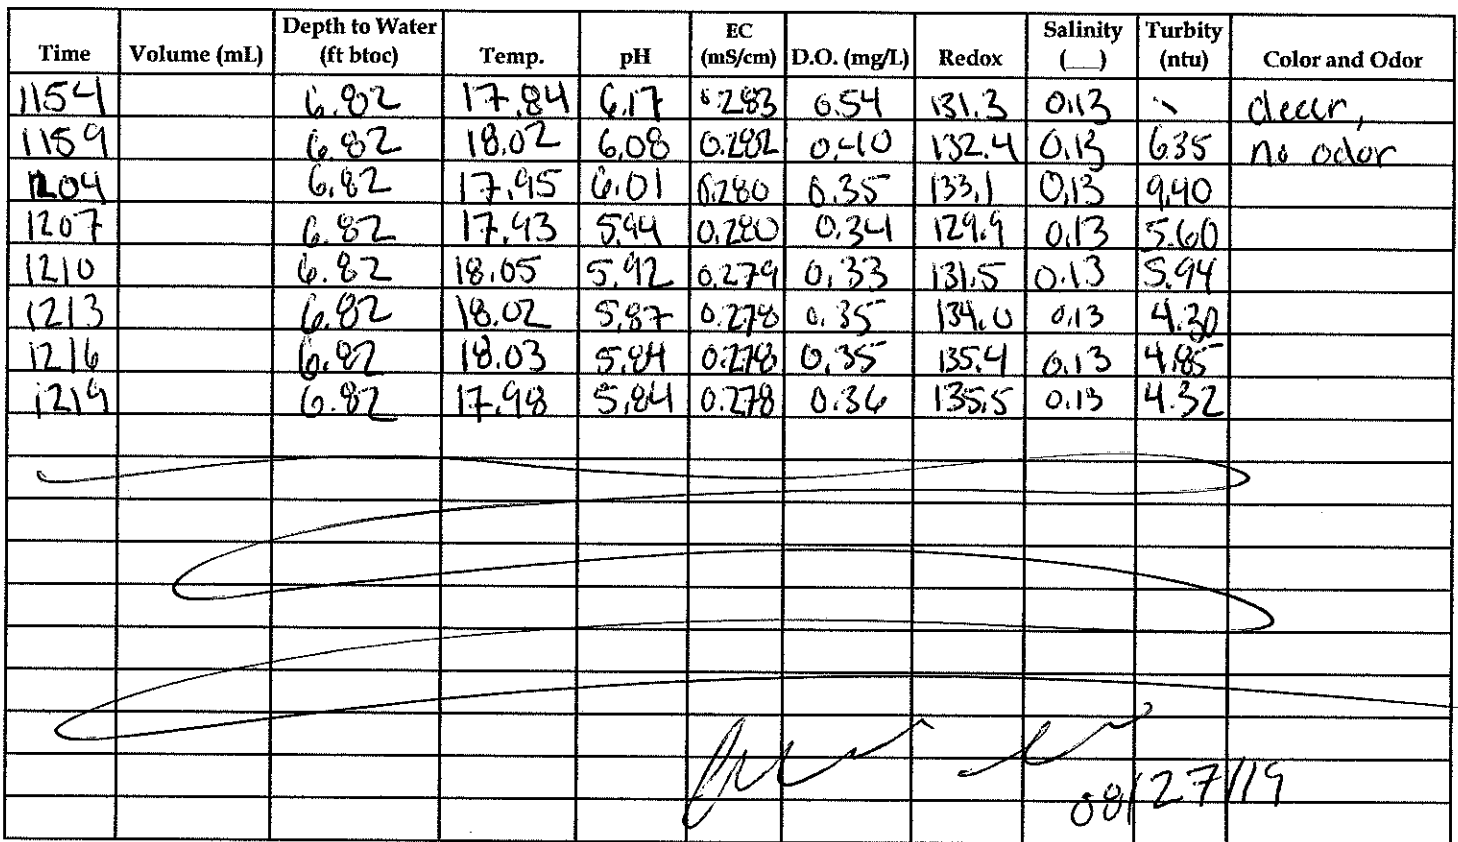 Time Volume (mL) Depth to Water (ft btoc) Temp. pH EC (mS/cm) D.O. (mg/L) Redox Salinity (__) Turbity (ntu) Color and Odor
1154 6.82 17.84 6.17 0.283 0.54 131.3 0.13 - clear,
1159 6.82 18.02 6.08 0.282 0.40 132.4 0.13 6.35 no odor
1204 6.82 17.95 6.01 0.280 0.35 133.1 0.13 9.40
1207 6.82 17.93 5.94 0.280 0.34 129.9 0.13 5.60
1210 6.82 18.05 5.92 0.279 0.33 131.5 0.13 5.94
1213 6.82 18.02 5.87 0.278 0.35 134.0 0.13 4.30
1216 6.82 18.03 5.84 0.278 0.35 135.4 0.13 4.85
1219 6.82 17.98 5.84 0.278 0.36 135.5 0.13 4.32
08/27/19